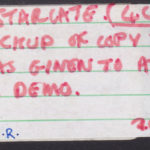 STARGATE. (4C
CKUP OF COPY
AS GIVEN TO A
DEMO.
.R.